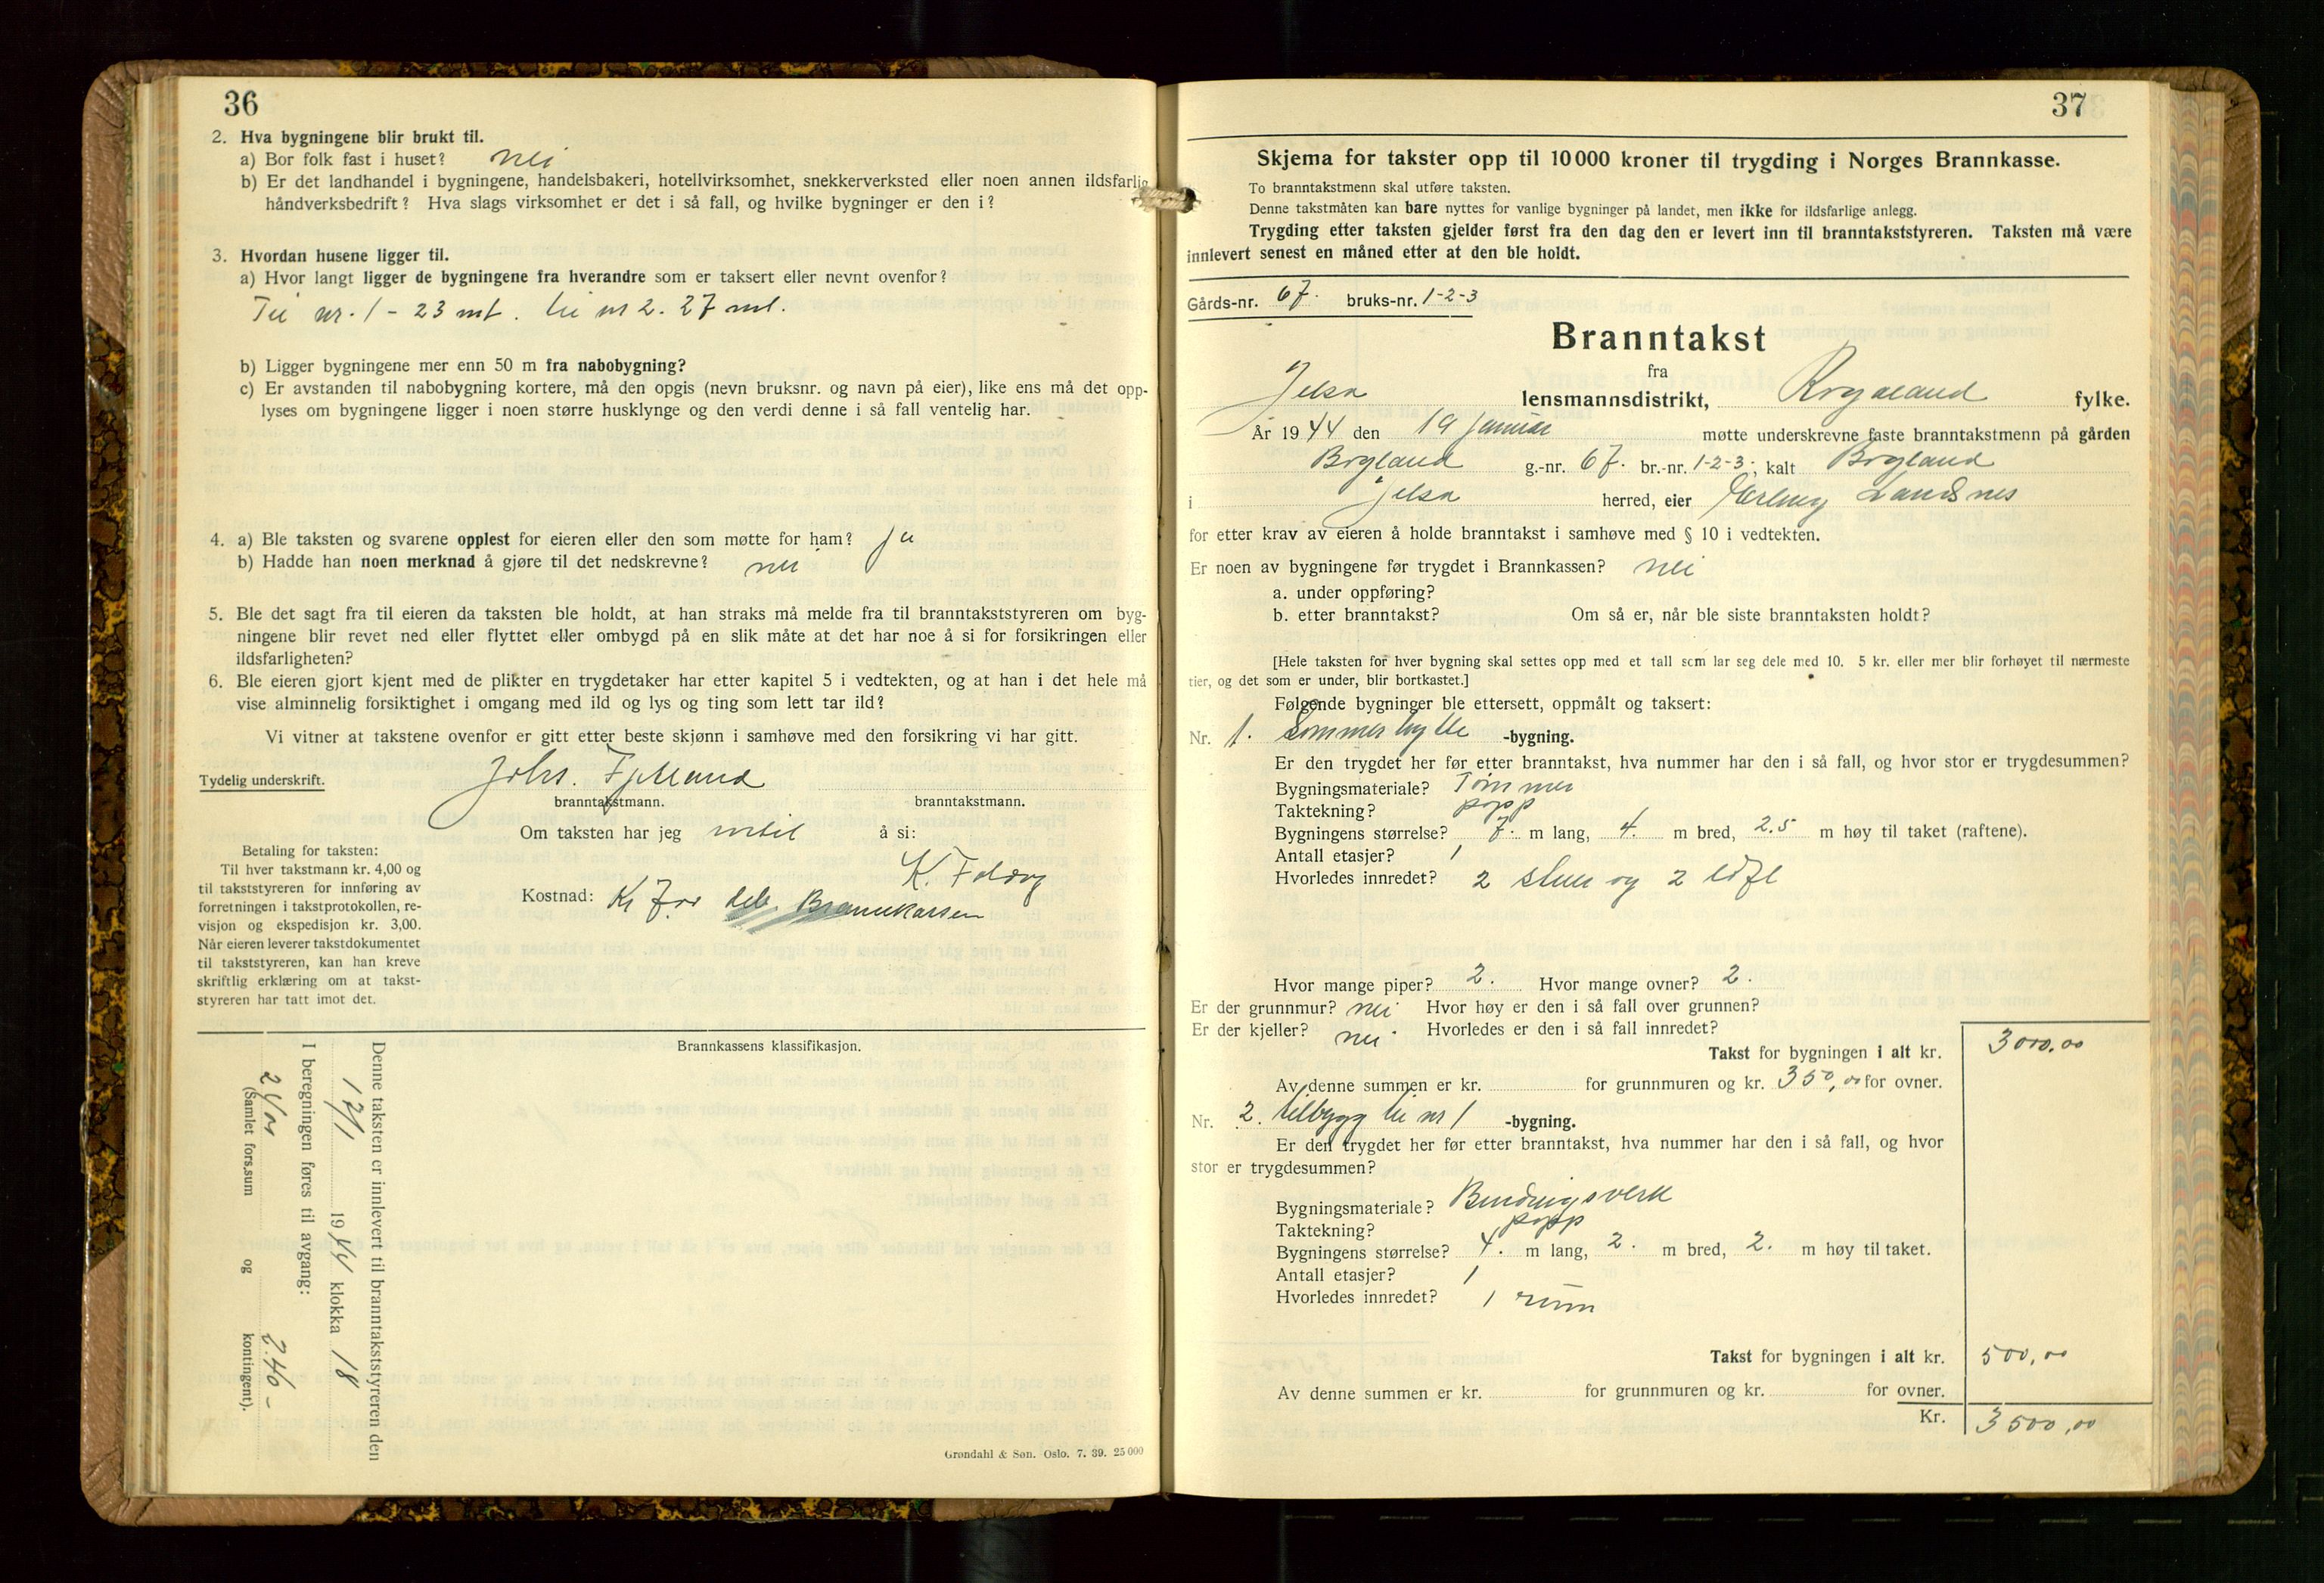 36
2. Hva bygningene blir brukt til.
a) Bor folk fast i huset? nei
b) Er det landhandel i bygningene, handelsbakeri, hotellvirksomhet, snekkerverksted eller noen annen ildsfarlig
håndverksbedrift? Hva slags virksomhet er det i så fall, og hvilke bygninger er den i?
3. Hvordan husene ligger til.
a) Hvor langt ligger de bygningene fra hverandre som er taksert eller nevnt ovenfor?
Til nr. 1 - 23 mt. til nr 2. 27 mt.
b) Ligger bygningene mer enn 50 m fra nabobygning?
c) Er avstanden til nabobygning kortere, må den opgis (nevn bruksnr. og navn på eier), like ens må det opp-
lyses om bygningene ligger i noen større husklynge og den verdi denne i så fall ventelig har.
4. a) Ble taksten og svarene opplest for eieren eller den som møtte for ham? ja
b) Hadde han noen merknad å gjøre til det nedskrevne? nei
5. Ble det sagt fra til eieren da taksten ble holdt, at han straks må melde fra til branntakststyreren om byg-
ningene blir revet ned eller flyttet eller ombygd på en slik måte at det har noe å si for forsikringen eller
ildsfarligheten?
6. Ble eieren gjort kjent med de plikter en trygdetaker har etter kapitel 5 i vedtekten, og at han i det hele må
vise alminnelig forsiktighet i omgang med ild og lys og ting som lett tar ild?
Vi vitner at takstene ovenfor er gitt etter beste skjønn i samhøve med den forsikring vi har gitt.
Tydelig underskrift.
Johs. Fjelland
branntakstmann. branntakstmann.
Om taksten har jeg intet å si:
K. Foldøy
Kostnad: Kr 7,00 deb. Brannkassen
Betaling for taksten:
Til hver takstmann kr. 4,00 og
til takststyreren for innføring av
forretningen i takstprotokollen, re-
visjon og ekspedisjon kr. 3,00.
Når eieren leverer takstdokumentet
til takststyreren, kan han kreve
skriftlig erklæring om at takst-
styreren har tatt imot det.
Brannkassens klassifikasjon.
Denne taksten er innlevert til branntakststyreren den
17/1 1944 klokka 18
I beregningen føres til avgang:
2.40 -
(Samlet fors.sum og kontingent).
Grøndahl & Søn. Oslo. 7. 39. 25 000
37
Skjema for takster opp til 10 000 kroner til trygding i Norges Brannkasse.
To branntakstmenn skal utføre taksten.
Denne takstmåten kan bare nyttes for vanlige bygninger på landet, men ikke for ildsfarlige anlegg.
Trygding etter taksten gjelder først fra den dag den er levert inn til branntakststyreren. Taksten må være
innlevert senest en måned etter at den ble holdt.
Gårds-nr. 67. bruks-nr. 1-2-3
Branntakst
fra
Jelsa lensmannsdistrikt, Rogaland fylke.
År 1944 den 19 januar møtte underskrevne faste branntakstmenn på gården
Bogland g.-nr. 67. br.-nr. 1-2-3, kalt Bogland
i Jelsa herred, eier Erling Landsnes
for etter krav av eieren å holde branntakst i samhøve med § 10 i vedtekten.
Er noen av bygningene før trygdet i Brannkassen? nei
a. under oppføring?
b. etter branntakst? Om så er, når ble siste branntaksten holdt?
[Hele taksten for hver bygning skal settes opp med et tall som lar seg dele med 10. 5 kr. eller mer blir forhøyet til nærmeste
tier, og det som er under, blir bortkastet.]
Følgende bygninger ble ettersett, oppmålt og taksert:
Nr. 1. Sommerhytte -bygning.
Er den trygdet her før etter branntakst, hva nummer har den i så fall, og hvor stor er trygdesummen?
Bygningsmateriale? Tømmer
Taktekning? papp
Bygningens størrelse? 7. m lang, 4. m bred, 2.5 m høy til taket (raftene).
Antall etasjer? 1
Hvorledes innredet? 2 stuer og 2 loft
Hvor mange piper? 2. Hvor mange ovner? 2.
Er der grunnmur? nei Hvor høy er den i så fall over grunnen?
Er der kjeller? nei Hvorledes er den i så fall innredet?
Takst for bygningen i alt kr. 3000,00
Av denne summen er kr. for grunnmuren og kr. 350,00 for ovner.
Nr. 2. tilbygg til nr 1 -bygning.
Er den trygdet her før etter branntakst, hva nummer har den i så fall, og hvor
stor er trygdesummen?
Bygningsmateriale? Bindingsverk
Taktekning? papp
Bygningens størrelse? 4. m lang, 2. m bred, 2. m høy til taket.
Antall etasjer? 1
Hvorledes innredet? 1 rum
Takst for bygningen i alt kr. 500,00
Av denne summen er kr. for grunnmuren og kr. for ovner.
Kr. 3500,00